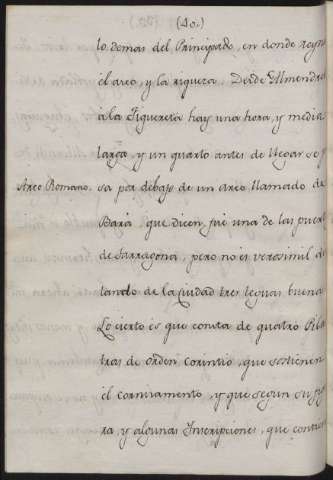 (40.)
lo demas del Principado, en donde reyna
el aseo, y la riqueza. Desde Almendra
à la Figuereta hay una hora, y media
larga, y un quarto antes de llegar se p
Arco Romano. sa por debajo de un Arco llamado de
Barà, que dicen, fué una de las puert
de Tarragona, pero no es verosimil d
tando de la Ciudad tres leguas buena
Lo cierto es que consta de quatro Pila
tras de orden corintio, que sostienen
el cornisamento, y que segun su fig
ra, y algunas Inscripciones, que conser